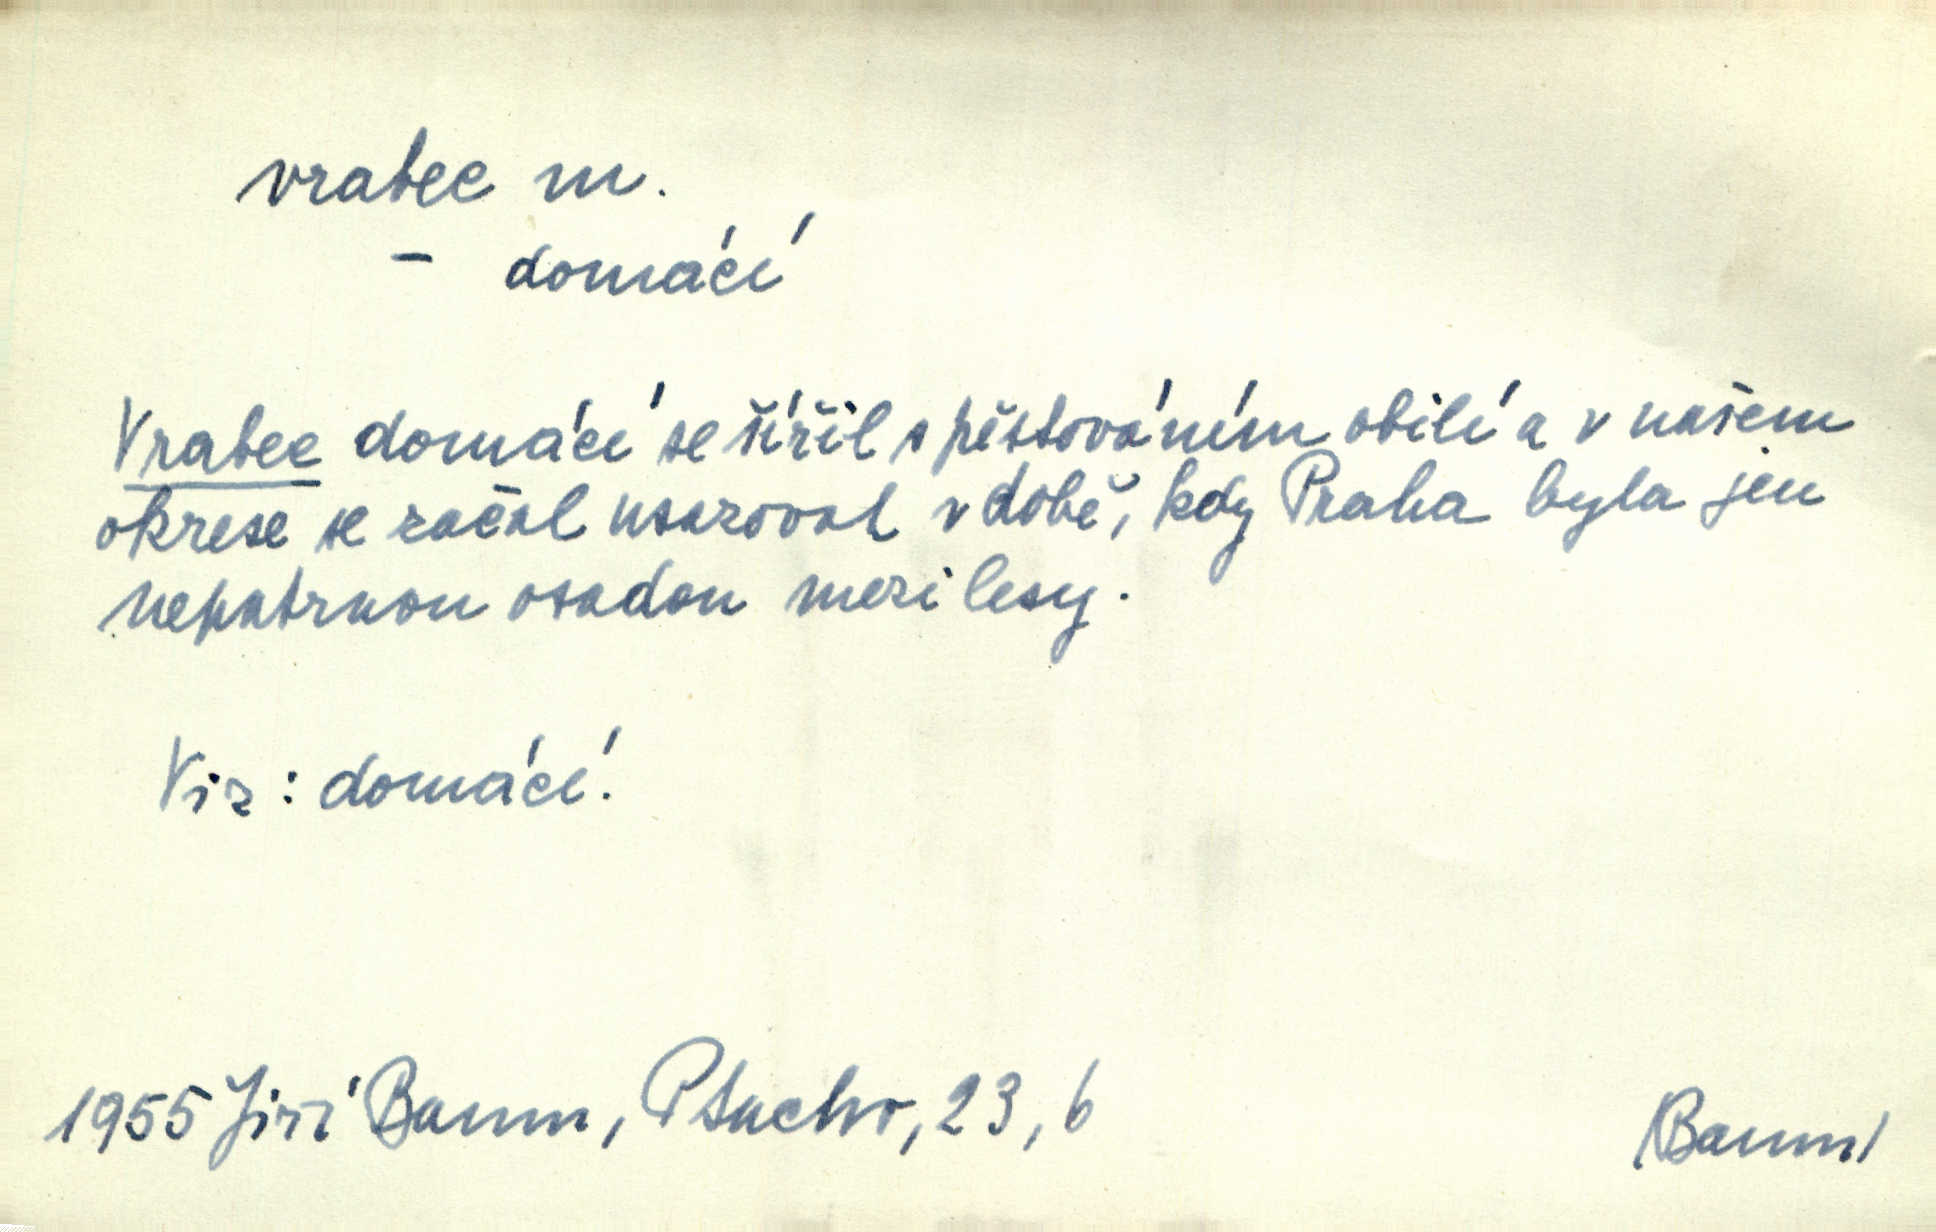 vrabec m.
- domácí
Vrabec domácí se šířil s pěstováním obilí a v našem
okrese se začal usazovat v době, kdy Praha byla jen
nepatrnou osadou mezi lesy.
Viz: domácí.
1955 Jiří Baum, Ptactvo, 23, 6
/Baum/